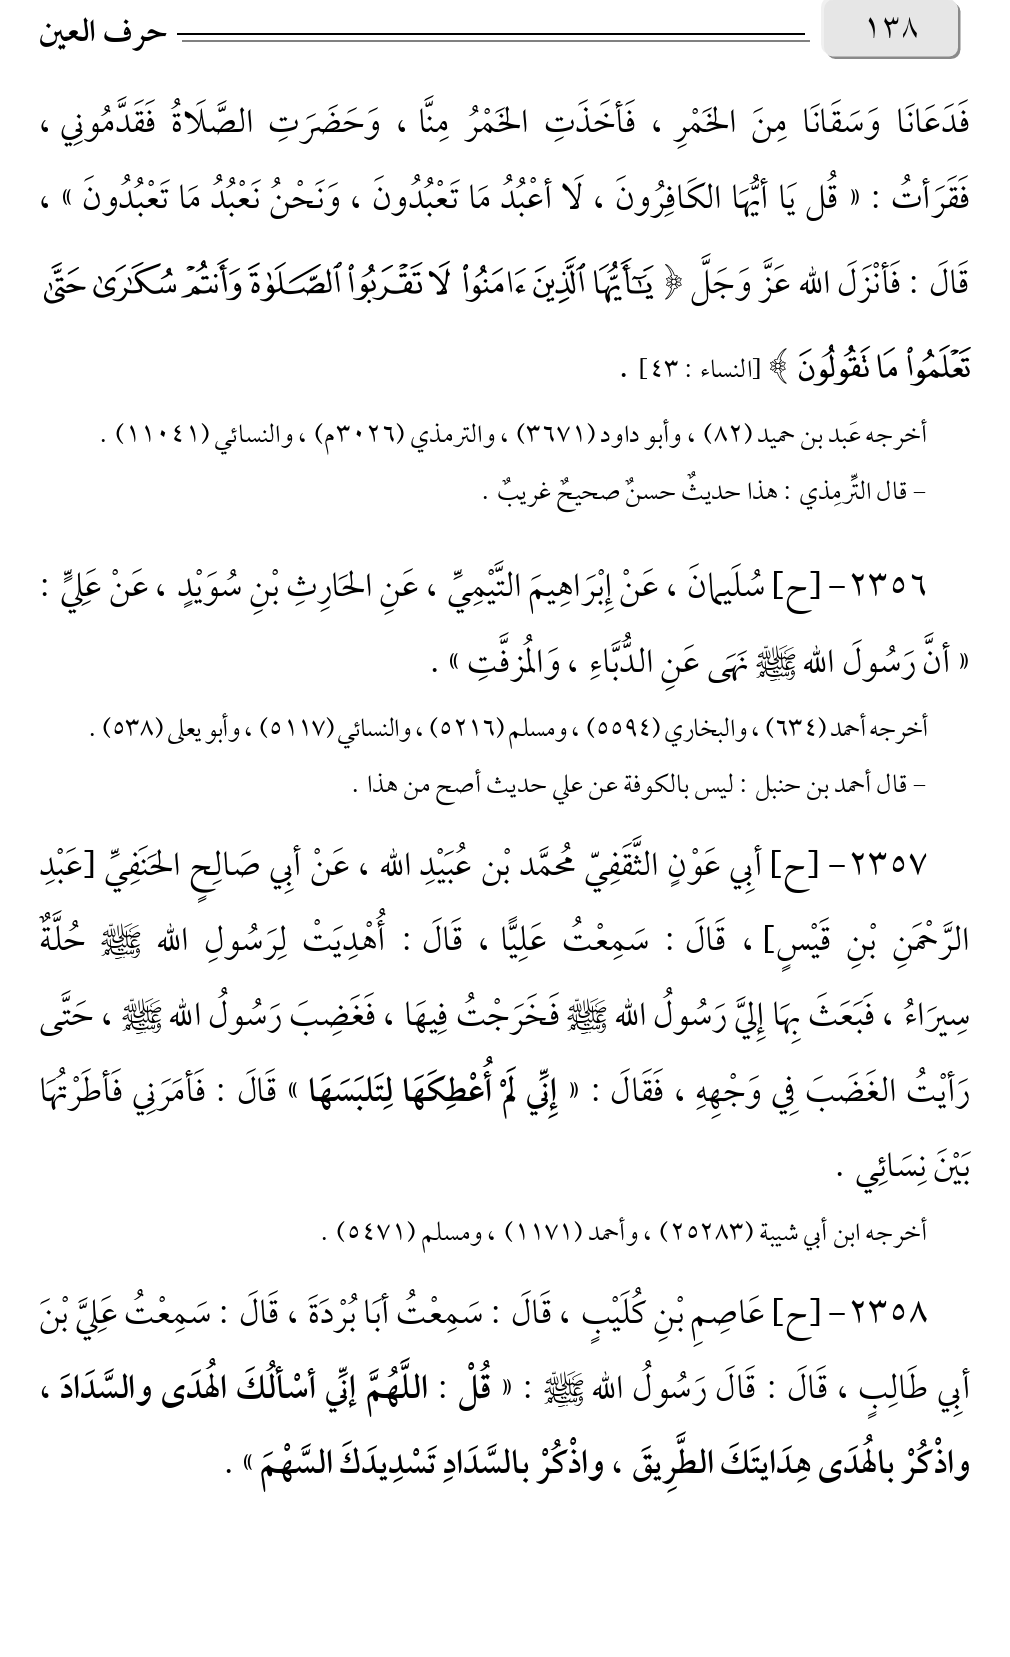 ١٣٨ حرف العين
فَدَعَانَا وَسَقَانَا مِنَ الخَمْرِ ، فَأخَذَتِ الخَمْرُ مِنَّا ، وَحَضَرَتِ الصَّلَاةُ فَقَدَّمُونِي ،
فَقَرَأتُ : « قُل يَا أيُّهَا الكَافِرُونَ ، لَا أعْبُدُ مَا تَعْبُدُونَ ، وَنَحْنُ نَعْبُدُ مَا تَعْبُدُونَ » ،
قَالَ : فَأنْزَلَ الله عَزَّ وَجَلَّ ﴿ يَٰٓأَيُّهَا ٱلَّذِينَ ءَامَنُوا۟ لَا تَقْرَبُوا۟ ٱلصَّلَوٰةَ وَأَنتُمْ سُكَٰرَىٰ حَتَّىٰ
تَعْلَمُوا۟ مَا تَقُولُونَ ﴾ [النساء : ٤٣] .
أخرجه عَبد بن حميد (٨٢) ، وأبو داود (٣٦٧١) ، والترمذي (٣٠٢٦م) ، والنسائي (١١٠٤١) .
– قال التِّرمِذي : هذا حديثٌ حسنٌ صحيحٌ غريبٌ .
٢٣٥٦– [ح] سُلَيمانَ ، عَنْ إِبْرَاهِيمَ التَّيْمِيِّ ، عَنِ الحَارِثِ بْنِ سُوَيْدٍ ، عَنْ عَلِيٍّ :
« أنَّ رَسُولَ الله ﷺ نَهَى عَنِ الدُّبَّاءِ ، وَالمُزفَّتِ » .
أخرجه أحمد (٦٣٤) ، والبخاري (٥٥٩٤) ، ومسلم (٥٢١٦) ، والنسائي (٥١١٧) ، وأبو يعلى (٥٣٨) .
– قال أحمد بن حنبل : ليس بالكوفة عن علي حديث أصح من هذا .
٢٣٥٧– [ح] أبِي عَوْنٍ الثَّقَفِيّ مُحمَّد بْن عُبَيْدِ الله ، عَنْ أبِي صَالِحٍ الحَنَفِيِّ [عَبْدِ
الرَّحْمَنِ بْنِ قَيْسٍ] ، قَالَ : سَمِعْتُ عَلِيًّا ، قَالَ : أُهْدِيَتْ لِرَسُولِ الله ﷺ حُلَّةٌ
سِيرَاءُ ، فَبَعَثَ بِهَا إِليَّ رَسُولُ الله ﷺ فَخَرَجْتُ فِيهَا ، فَغَضِبَ رَسُولُ الله ﷺ ، حَتَّى
رَأيْتُ الغَضَبَ فِي وَجْهِهِ ، فَقَالَ : « إِنِّي لَمْ أُعْطِكَهَا لِتَلبَسَهَا » قَالَ : فَأمَرَنِي فَأطَرْتُهَا
بَيْنَ نِسَائِي .
أخرجه ابن أبي شيبة (٢٥٢٨٣) ، وأحمد (١١٧١) ، ومسلم (٥٤٧١) .
٢٣٥٨– [ح] عَاصِمِ بْنِ كُلَيْبٍ ، قَالَ : سَمِعْتُ أبَا بُرْدَةَ ، قَالَ : سَمِعْتُ عَلِيَّ بْنَ
أبِي طَالِبٍ ، قَالَ : قَالَ رَسُولُ الله ﷺ : « قُلْ : اللَّهُمَّ إنِّي أسْألُكَ الهُدَى والسَّدَادَ ،
واذْكُرْ بالهُدَى هِدَايتَكَ الطَّرِيقَ ، واذْكُرْ بالسَّدَادِ تَسْدِيدَكَ السَّهْمَ » .